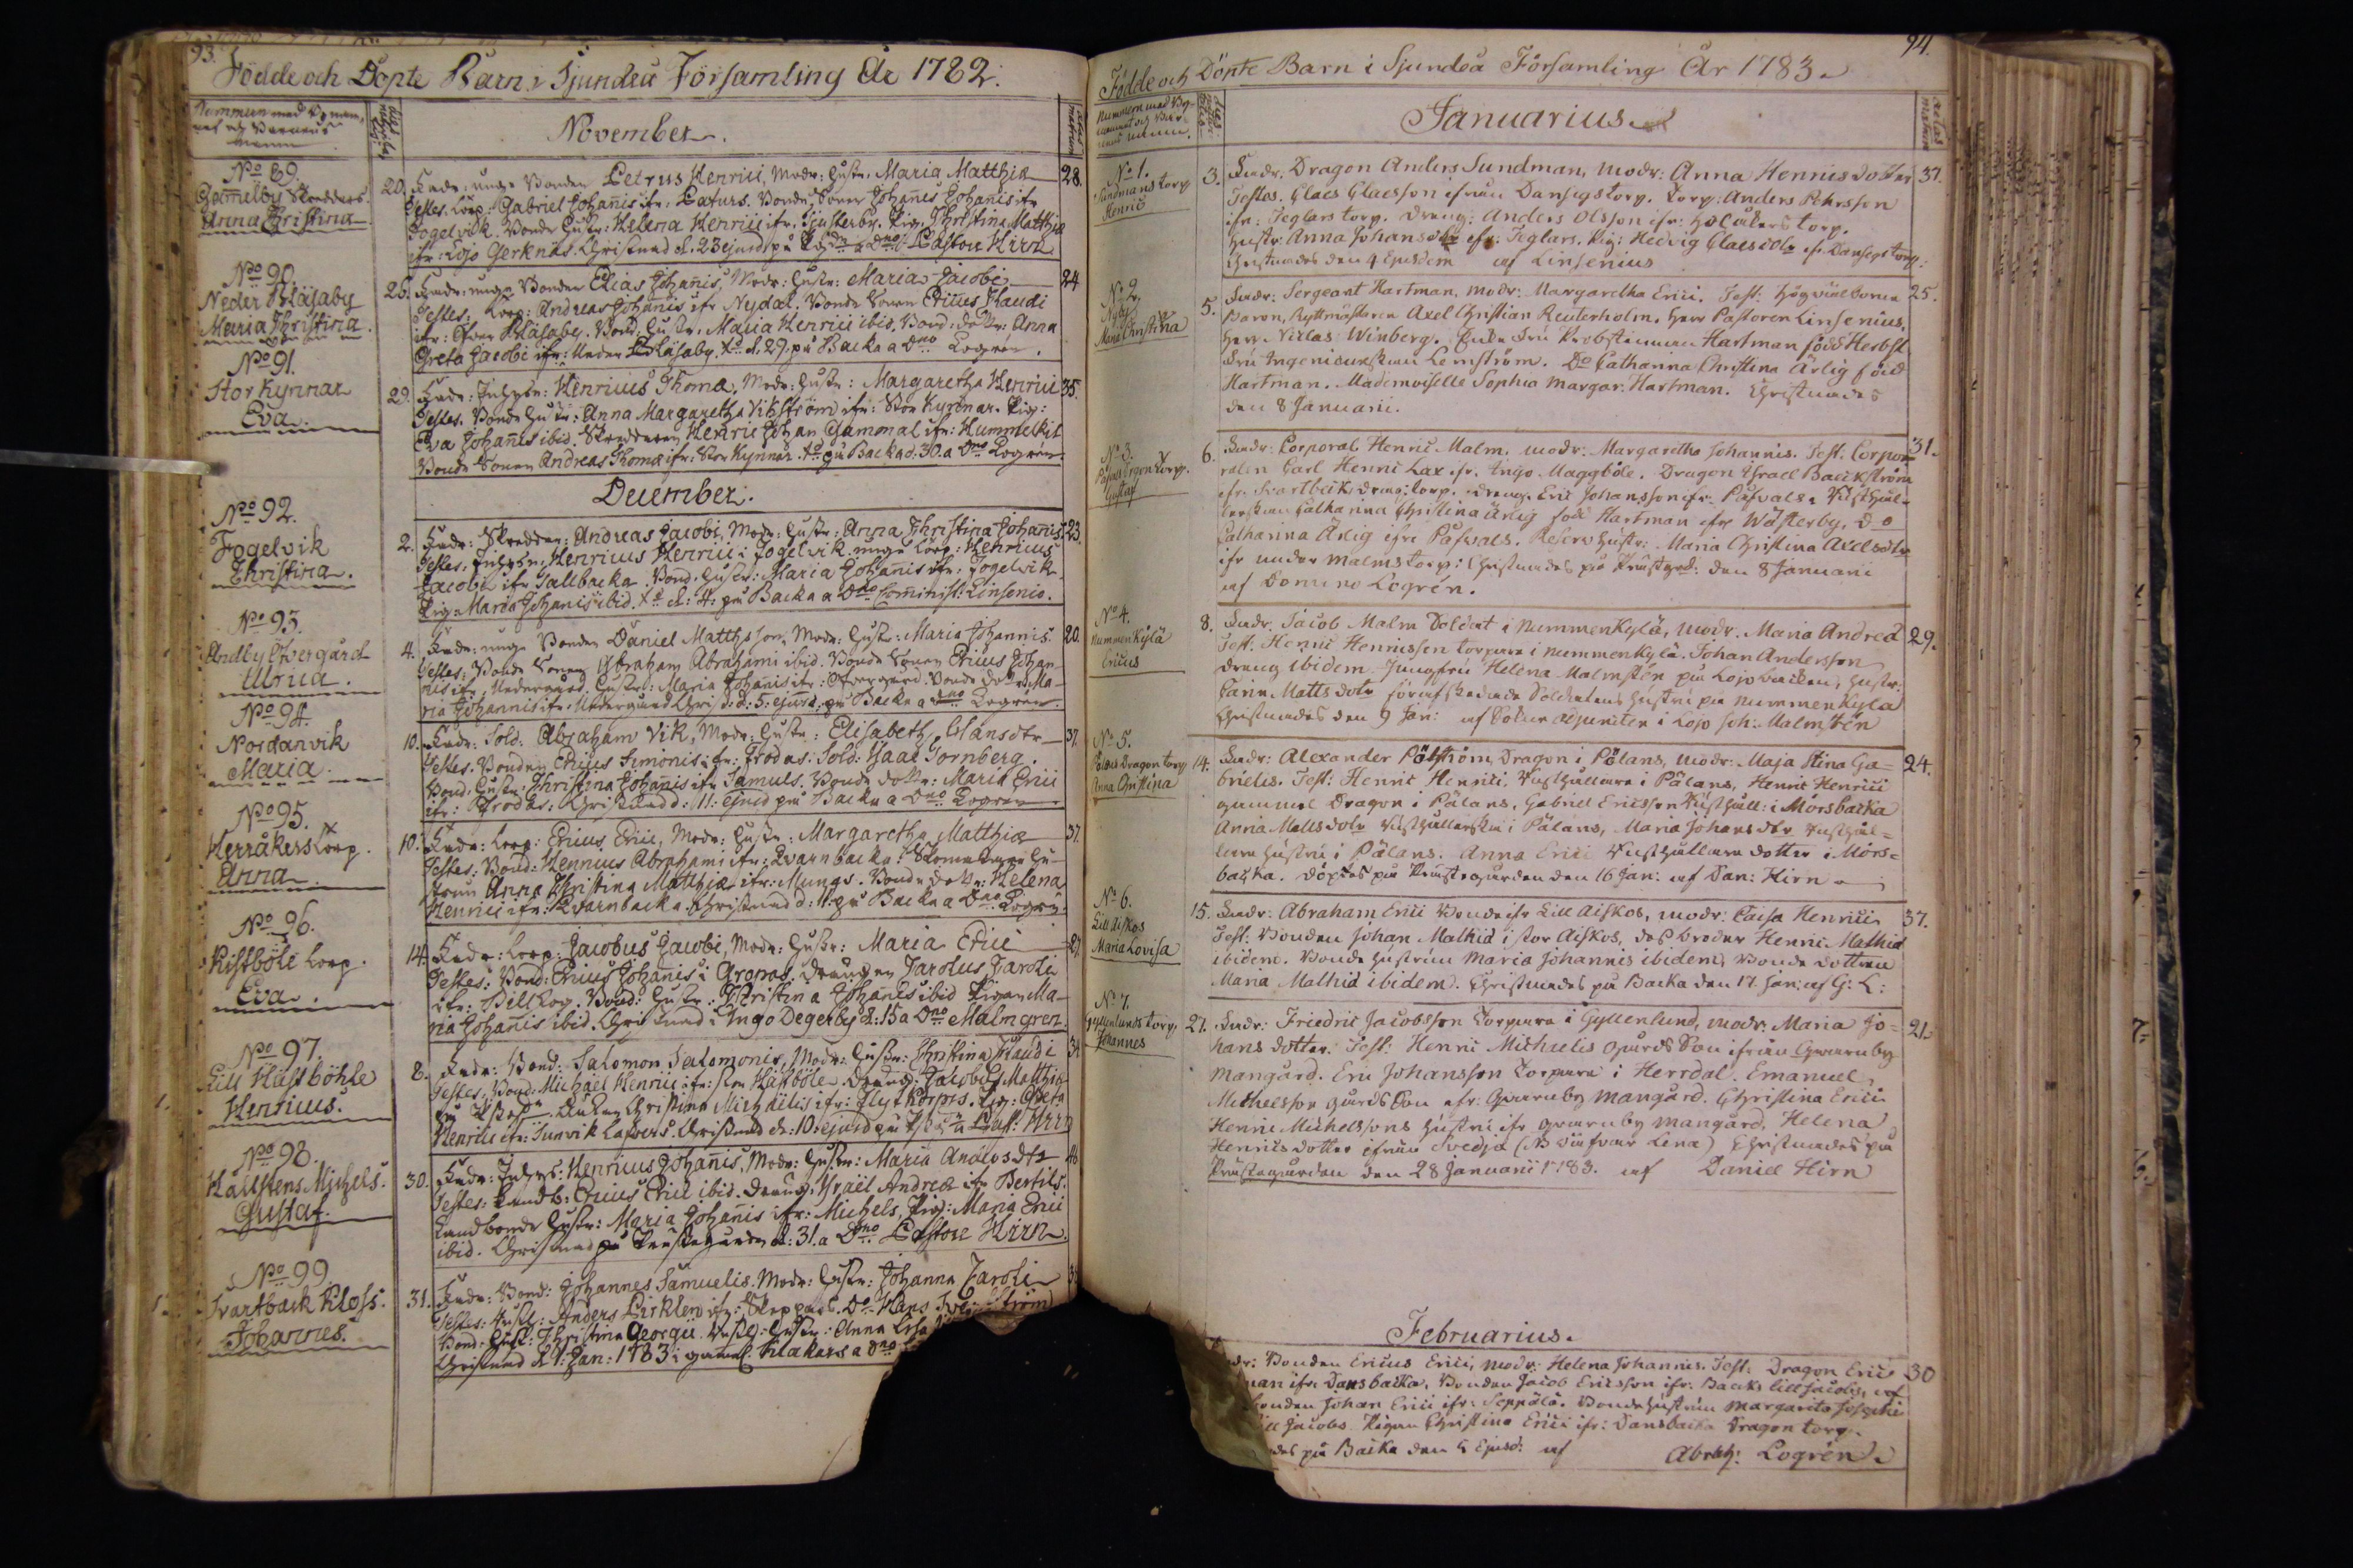 93.
Födde och Döpte Barn i Sjundeå Församling År 1782.
November.
No 89.
Gammelby Skredders.
Anna Christina
20. Fadr: unge Bonden Petrus Henrici, Modr: Hustr: Maria Matthiæ 28.
Testes. Torp: Gabriel Johannis ifr: Paturs. Bonde Sonen Johannes Johannis ifr
Fogelvik. Bonde Hustr: Helena Henrici ifr: Tjusterby. Pig. Christina Matthiæ
ifr: Lojo Gerknäs. Christnad d. 23 ejusd. på a Dno Pastore Hirn
No 90.
Neder Bläsaby
Maria Christina.
25. Fadr: unge Bonden Elias Johannis, Modr: Hustr: Maria Jacobi 24
Testes: Torp: Andreas Johannis ifr Nydal. Bonde Sonen Ericus Claudi
ifr: Öfver Bläsaby. Bond: Hustr: Maria Henrici ibid. Bond: Dottr: Anna
Greta Jacobi ifr: Neder Bläsaby. d. 29. på Backa a Dno Logrén.
No 91.
Stor Kynnar
Eva.
29. Fadr: Inhyss: Henricus Thomæ, Modr: Hustr: Margaretha Henrici 35.
Testes. Bonde Hustr: Anna Margaretha Vikström ifr: Stor Kynnar. Pig:
Eva Johannis ibid. Skreddaren Henric Johan Gammal ifr: Hummelkil
Bonde Sonen Andreas Thomæ ifr: Stor Kynnar. på Backa d: 30. a Dno Logrén.
December.
No 92.
Fogelvik
Christina.
2. Fadr: Skreddar: Andreas Jacobi, Modr: Hustr: Anna Christina Johannis 23.
Testes, Inhyss: Henricus Henrici i Fogelvik. unge Torp: Henricus
Jacobi ifr Tallbacka. Bond: Hustr: Maria Johannis ifr: Fogelvik
Pig: Maria Johannis ibid. d: 4: på Backa a Dno Comminist: Linsenio.
No 93.
Andby Öfvergård
Ulrica.
4. Fadr: unge Bonden Daniel Matthsson. Modr: Hustr: Maria Johannis 20.
Testes: Bonde Sonen Abraham Abrahami ibid. Bonde Sonen Ericus Johan-
nis ifr: Nedergård. Hustr: Maria Johannis ifr: Öfvergård. Bonde dottr Ma-
ria Johannis ifr: Nedergård Chri d: 5: ejusd: på Backa a Dno Logrén.
No 94.
Nordanvik
Maria.
10. Fadr: Sold: Abraham Vik, Modr: Hustr: Elisabeth Hansdtr 37.
Testes. Bonden Ericus Simonis ifr: Frodas. Sold: Isaac Tornberg.
Bond: Hustr: Christina Johannis ifr Samuls. Bonde dottr: Maria Erici
ifr: Frodas. Christnad d: 11: ejusd på Backa a Dno Logren
No 95.
Herråkers torp.
Anna
10. Fadr: Torp: Ericus Erici, Modr: Hustr: Margaretha Matthiæ 37.
Testes: Bond: Henricus Abrahami ifr: Qvarnbacka. Skomakare Hu-
strun Anna Christina Matthiæ ifr: Mungs. Bonde dottr: Helena
Henrici ifr: Qvarnbacka. Christnad d: 11. på Backa a Dno Logrén.
No 96.
Kistböle torp.
Eva.
14. Fadr: Torp: Jacobus Jacobi, Modr: Hustr: Maria Erici 27.
Testes: Bond: Ericus Johannis i Aronas. Drängen Carolus Caroli
ifr: Billskog. Bond: Hustr: Christina Johannis ibid Pigan Ma-
ria Johannis ibid. Christnad i Ingo Degerby d: 15 a Dno Malmgren.
No 97.
Lill Hästböhle
Henricus.
8. Fadr: Bond: Salomon Salomonis, Modr: Hustr: Christina Claudi 34
Testes: Bond: Michael Henrici ifr: stor Hästböle. Dräng: Jacobus Matthiæ
Enkan Christina Michaelis ifr: Flyt korpis. Pig: Greta
Henrici ifr: Sunvik Lassvers. Christnad d: 10. ejusd på a Past: Hirn
No 98.
Hallstens Michels.
Gustaf.
30. Fadr: Inhys: Henricus Johannis, Modr: Hustr: Maria Anders dtr 46
Testes: Landb: Ericus Erici ibid. Dräng. Israël Andreæ ifr Bertils.
Landbonde Hustr: Maria Johannis ifr: Michels, Pig: Maria Erici
ibid. Christnad på Prestegården d: 31. a Dno: Pastore Hirn.
No 99
Svartback Kloss.
Johannes.
31. Fadr: Bond: Johannes Samuelis. Modr: Hustr: Johanna Caroli
Testes: Anders Lirklen ifr: Skeppars. Do Hans
Bond: Hust: Christina Georgii. Hustr: Anna Lisa
Christnad d 1: Jan: 1783 i gamel: Klakars a Dno
94.
Födde och Döpte Barn i Sjundeå Församling År 1783.
Januarius.
No 1.
Sundmans torp
Henric
3. Fadr. Dragon Anders Sundman, modr: Anna Henricsdotter 37.
Testes. Claes Claesson ifrån Dansegs torp. Torp: Anders Pehrsson
ifr: Teglars torp. Dräng: Anders Olsson ifr: Holåkers torp.
Hustr: Anna Johansdotr ifr: Teglars. Pig: Hedvig Claesdotr ifr. Dansegs torp:
Christnades den 4 Ejusdem af Linsenius
No 2.
Nyby
Maria Christina
5. Fadr: Sergeant Hartman. modr: Margaretha Erici. Test: Högvälborne 25.
Baron, Ryttmästaren Axel Christian Reuterholm. Herr Pastoren Linsenius.
Herr Niclas Winberg. Enke Fru Probstinnan Hartman född Herbst.
Fru Ingenieurskan Lernström. Do Catharina Christina Ärlig född
Hartman. Mademoiselle Sophia Margar: Hartman. Christnades
den 8 Januarii.
No 3.
Påfvals Drgon torp.
Gustaf
6. Fadr: Corporal Henric Malm. modr: Margaretha Johannis. Test. Corpo- 31.
ralen Carl Henric Lax ifr. Ingo Maggböle. Dragon Israel Backström
ifr. Svartbäck drag: torp. dräng. Eric Johansson ifr: Påfvals. Rusthål-
lerskan Catharina Christina Ärlig född Hartman ifr Wästerby. Do
Catharina Ärlig ifrå Påfvals. Reserv Hustr: Maria Christina Axelsdotr
ifr under Malms torp: Christnades på Prästgrd: den 8 Januarii
af Domino Logrén.
No 4.
Nummenkylä
Ericus
8. Fadr. Jacob Malm Soldat i Nummenkylä, modr. Maria Andreæ 29.
Test. Henric Henricsson torpare i Nummenkylä. Johan Andersson
dräng ibidem. Jungfru Helena Malmstén på Lojo backen, Hustr:
Carin Matts dotr förafskedade Soldatens hustru på Nummenkylä
Christnades den 9 Jan: af Adjuncten i Lojo Joh: Malmstén
No 5.
Pålans Dragon torp
Anna Christina
14. Fadr: Alexander Påhlström Dragon i Pålans, modr: Maja Stina Ga- 24.
brielis. Test: Henric Henrici. Rusthållare i Pålans, Henric Henrici
gammel Dragon i Pålans, Gabriel Ericsson Rusthåll: i Morsbacka
Anna Mattsdotr Rusthållerska i Pålans, Maria Johansdtr Rusthål-
lare hustru i Pålans. Anna Erici Rusthållare dotter i Mors-
backa. Döptes på Prästegården den 16 Jan: af Dan: Hirn
No 6.
Lill Aiskos
Maria Lovisa
15. Fadr: Abraham Erici Bonde ifr Lill Aiskos, modr: Caisa Henrici 37.
Test: Bonden Johan Mathiæ i stor Aiskos, des broder Henric Mathiæ
ibidem. Bonde hustrun Maria Johannis ibidem, Bonde dottren
Maria Mathiæ ibidem. Christnades på Backa den 17 Jan: af G: L:
No 7.
Gyllenlunds torp,
Johannes
27. Fadr: Friedric Jacobsson Torpare i Gyllenlund, modr: Maria Jo- 21.
hans dotter. Test: Henric Michaelis gårds Son ifrån Qvarnby
mangård. Eric Johansson Torpare i Herrdal. Emanuel
Michelsson gårds Son ifr: Qvarnby mangård. Christina Erici
Henric Michelssons hustru ifr qvarnby mangård. Helena
Henrics dotter ifrån Svedja (NB Lena) Christnades på
Prästegården den 28 Januarii 1783. af Daniel Hirn
Februarius.
Bonden Ericus Erici, modr: Helena Johannis. Test: Dragon Eric 30
man ifr: Dansbacka, Bonden Jacob Ericsson ifr: Backs lill Jacobs,
Bonden Johan Erici ifr: Seppälä. Bonde hustrun Margareta Josephi
Jacobs Pigan Christina Erici ifr: Dansbacka Dragon torp.
på Backa den 5 Ejusd: af Abrah: Logrén.